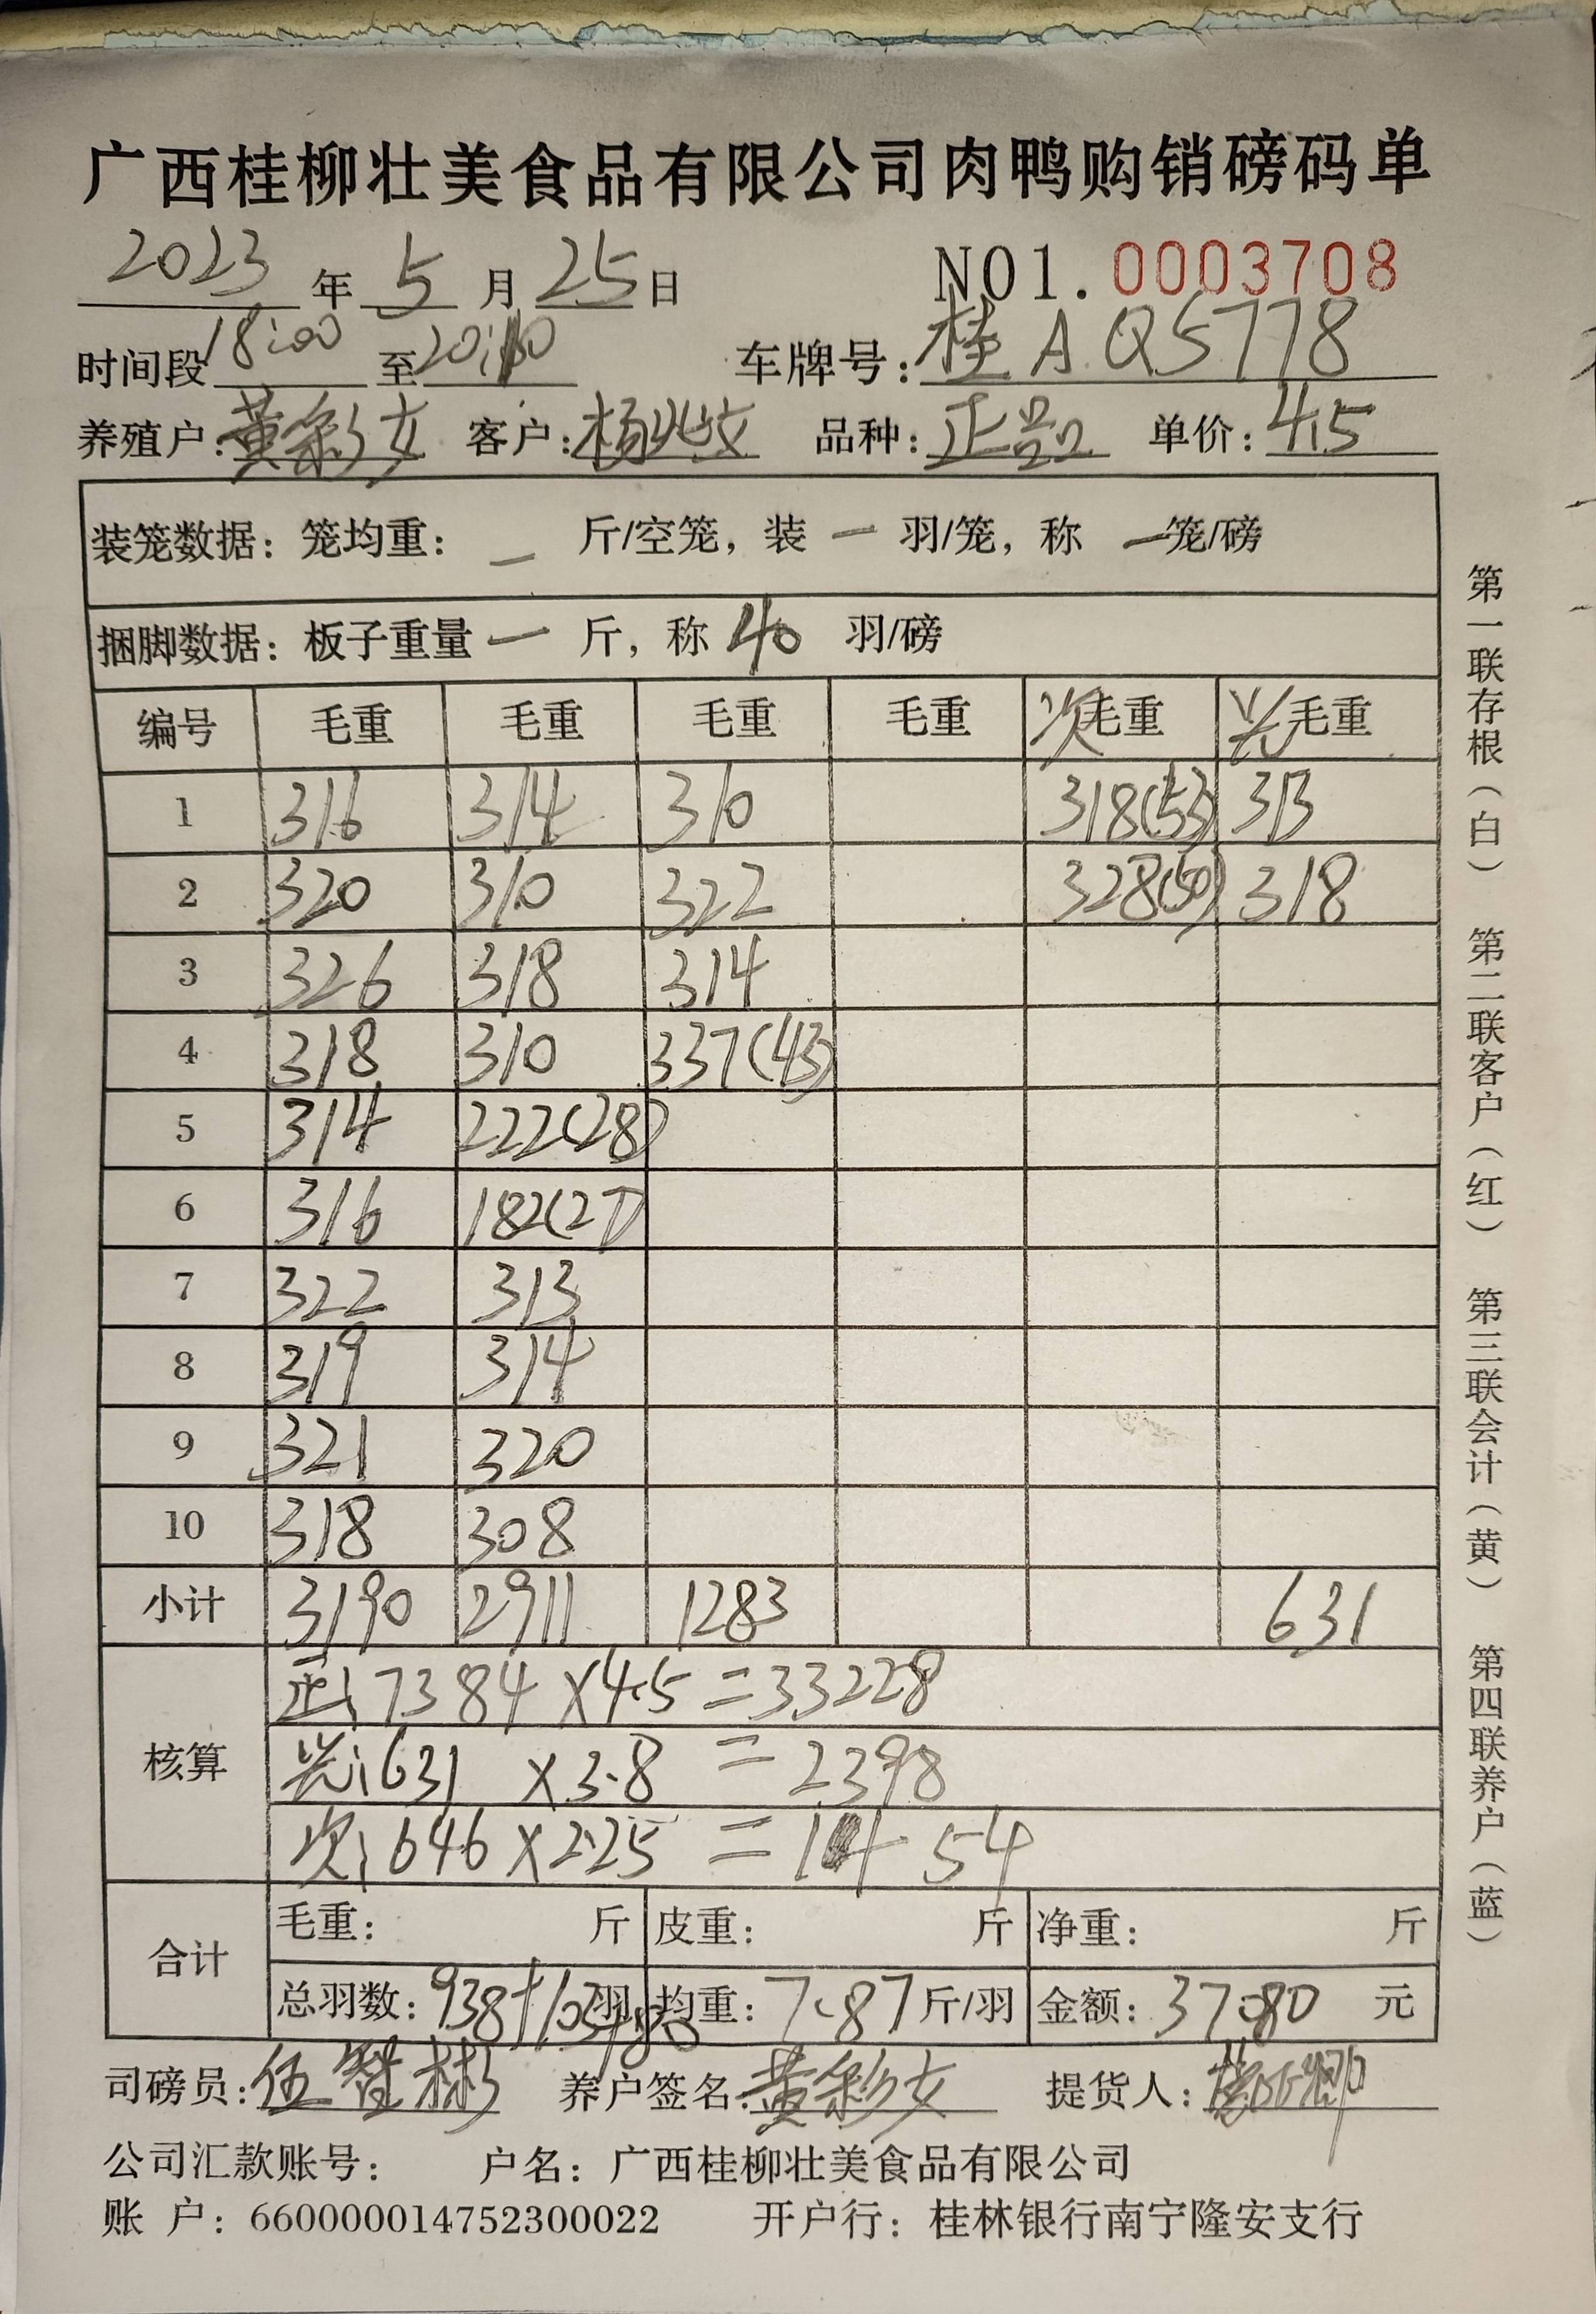 广西桂柳壮美食品有限公司肉鸭购销磅码单
2023年5月25日 NO1.0003708
时间段18:00至20: 车牌号:桂A.Q5778
养殖户:黄彩女 客户:杨 品种:正品 单价:4.5
装笼数据:笼均重: — 斤/空笼,装 — 羽/笼,称 — 笼/磅
捆脚数据:板子重量 — 斤,称 40 羽/磅
编号 毛重 毛重 毛重 毛重 次毛重 光毛重
1 316 314 310 318(53) 313
2 320 310 322 328(50) 318
3 326 318 314
4 318 310 337(43)
5 314 222(28)
6 316 182(27)
7 322 313
8 319 314
9 321 320
10 318 308
小计 3190 2911 1283 631
核算
正:7384×4.5=33228
光:631 ×3.8 =2398
次:646×2.25 =1454
合计
毛重: 斤 皮重: 斤 净重: 斤
总羽数:938+103+80羽 均重:7.87斤/羽 金额:37080 元
司磅员:伍智彬 养户签名:黄彩女 提货人:
公司汇款账号: 户名:广西桂柳壮美食品有限公司
账 户:660000014752300022 开户行:桂林银行南宁隆安支行
第一联存根(白) 第二联客户(红) 第三联会计(黄) 第四联养户(蓝)